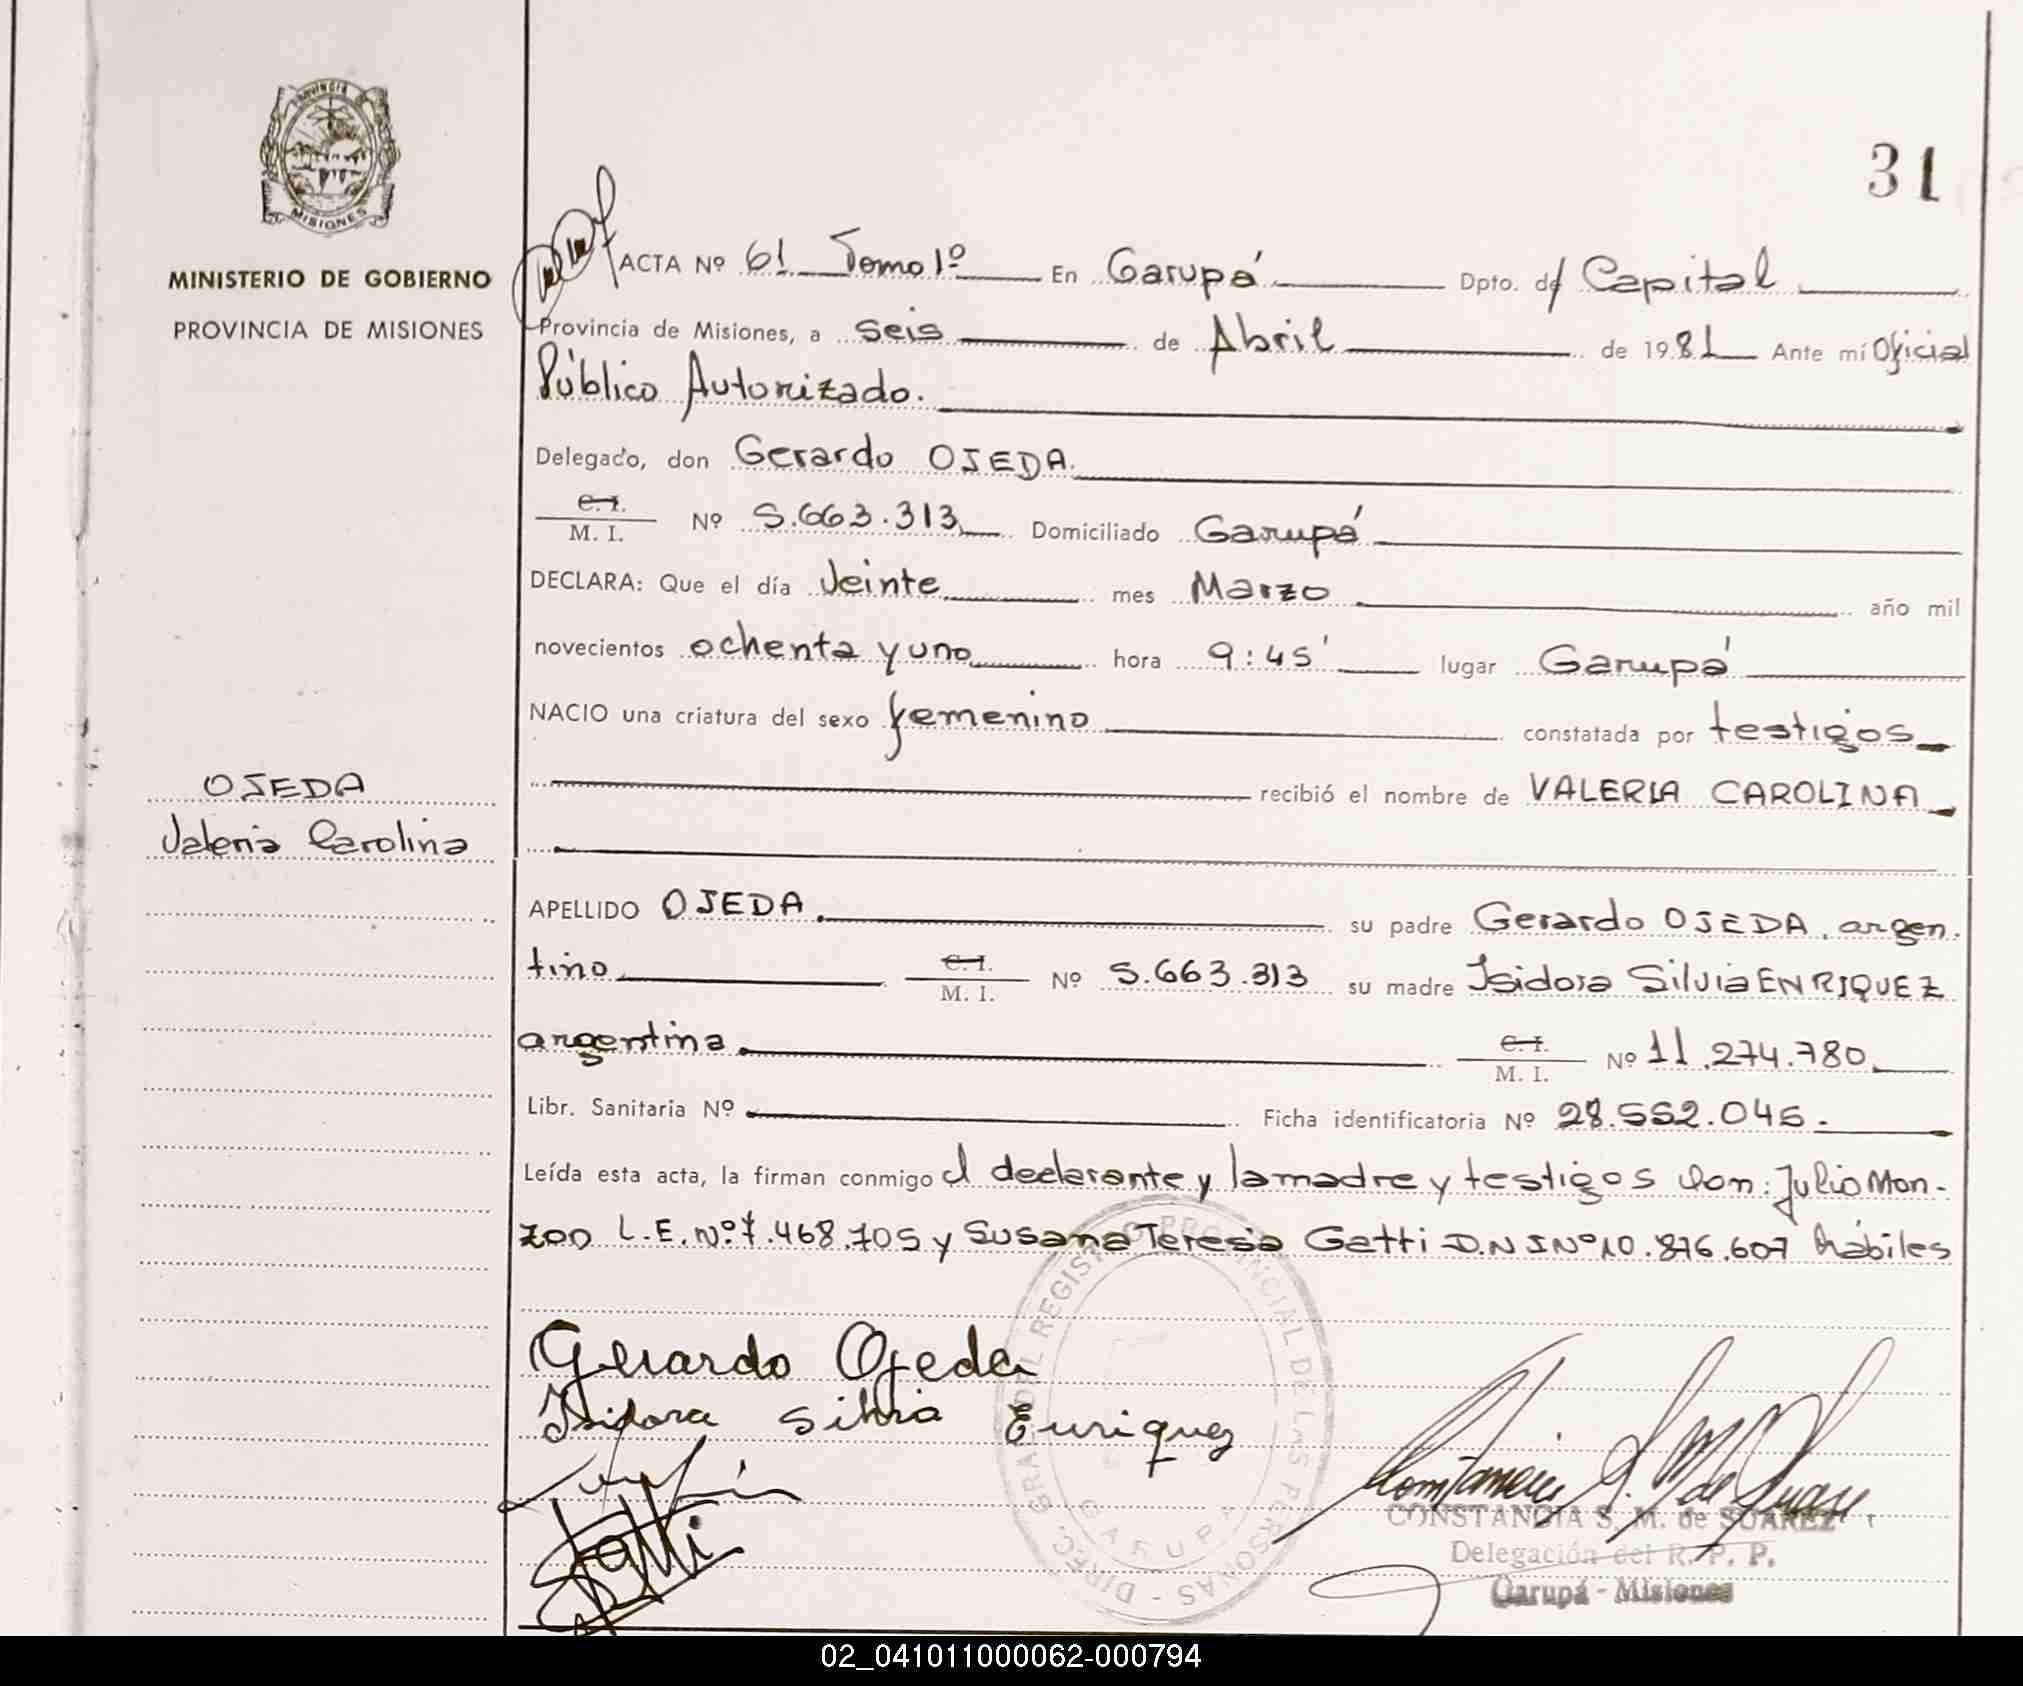 PROVINCIA DE
MISIONES
MINISTERIO DE GOBIERNO
PROVINCIA DE MISIONES
31
ACTA Nº 61 Tomo 1º En Garupá Dpto. de Capital
Provincia de Misiones, a seis de Abril de 1981 Ante mí Oficial
Público Autorizado.
Delegado, don Gerardo OJEDA.
C. I.
M. I. Nº 5.663.313 Domiciliado Garupá
DECLARA: Que el día Veinte mes Marzo año mil
novecientos ochenta y uno hora 9:45' lugar Garupá
NACIO una criatura del sexo femenino constatada por testigos
recibió el nombre de VALERIA CAROLINA
OJEDA
Valeria Carolina
APELLIDO OJEDA su padre Gerardo OJEDA, argen.
tino C. I.
M. I. Nº 5.663.313 su madre Isidora Silvia ENRIQUEZ
argentina C. I.
M. I. Nº 11.274.780
Libr. Sanitaria Nº Ficha identificatoria Nº 28.552.045.
Leída esta acta, la firman conmigo el declarante y la madre y testigos don: Julio Mon-
zon L.E.Nº 7.468.705 y Susana Teresa Getti D.N.I Nº 10.876.607 hábiles
Gerardo Ojeda
Isidora Silvia Enriquez
DIREC. GRAL. DEL REGISTRO PROVINCIAL DE LAS PERSONAS
GARUPA
Constancia S. M. de Suarez
CONSTANCIA S. M. de SUAREZ
Delegación del R. P. P.
Garupá - Misiones
02_041011000062-000794